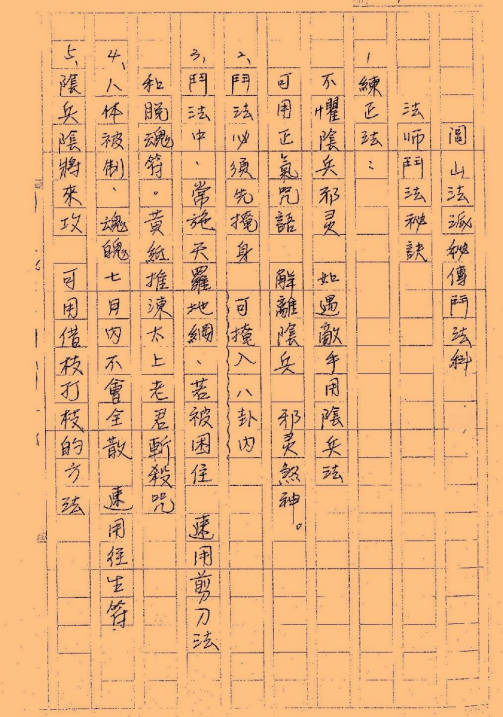 閭山法派秘傳鬥法科
法師鬥法秘訣
1 練正法：
不懼陰兵邪灵 如遇敵手用陰兵法
可用正氣咒語 解離陰兵 邪灵煞神。
2、鬥法必須先掩身 可掩入八卦內
3、鬥法中、常施天羅地網、若被困住 速用剪刀法
和脫魂符。黃紙推涷太上老君斬殺咒
4、人体被制、魂魄七月內不會全散 速用往生符
5、陰兵陰將來攻 可用借枝打枝的方法